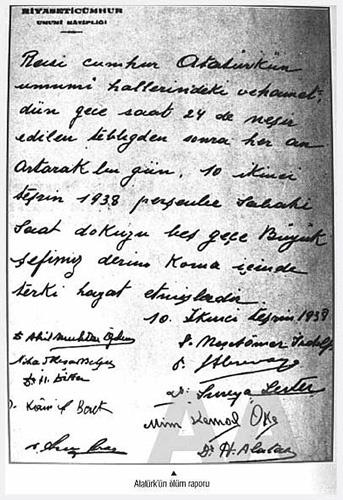 RİYASETİCÜMHUR
UMUMİ KÂTİPLİĞİ
Reisi cumhur Atatürkün
umumi hallerindeki vehamet,
dün gece saat 24 de neşir
edilen tebliğden sonra her an
artarak bu gün, 10 ikinci
teşrin 1938 perşenbe sabahi
Saat dokuzu beş geçe Büyük
Şefimiz derin Koma içinde
terki hayat etmişlerdir.
10. İkinci teşrin 1938
Dr
Dr Süreya
Mim Kemal Öke
Dr H. Alataş
AA
Atatürk'ün ölüm raporu